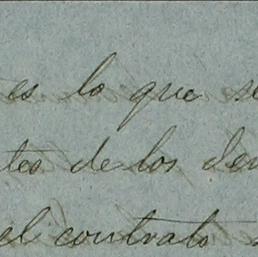 es lo que se
tes de los den
el contrato